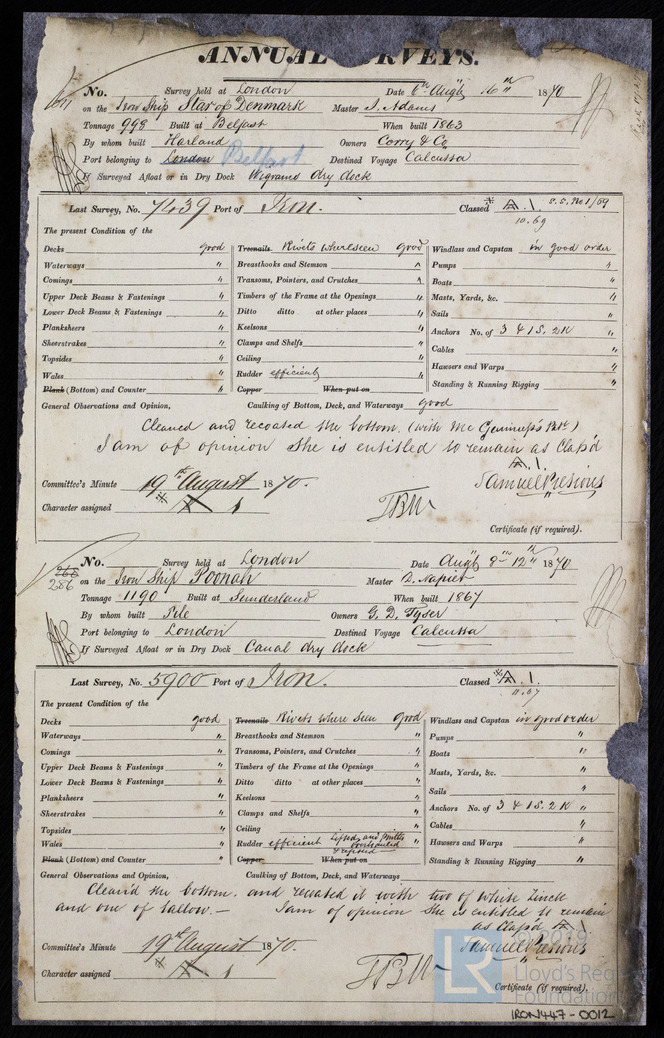 ANNUAL SURVEYS.
No. Survey held at London Date 6th Augt 16th 1870
on the Iron Ship Star of Denmark Master J. Adams
Tonnage 998 Built at Belfast When built 1863
By whom built Harland Owners Corry & Co
Port belonging to London Belfast Destined Voyage Calcutta
If Surveyed Afloat or in Dry Dock Wigrams dry dock
Last Survey, No. 7439 Port of Iron. Classed A. 1.
10.69
The present Condition of the
Decks good Treenails Rivets where seen good Windlass and Capstan in good order
Waterways " Breasthooks and Stemson " Pumps "
Comings " Transoms, Pointers, and Crutches " Boats "
Upper Deck Beams & Fastenings " Timbers of the Frame at the Openings " Masts, Yards, &c. "
Lower Deck Beams & Fastenings " Ditto ditto at other places " Sails "
Planksheers " Keelsons " Anchors No. of 3 & 1 S. 2 K "
Sheerstrakes " Clamps and Shelfs " Cables "
Topsides " Ceiling " Hawsers and Warps "
Wales " Rudder efficient " Standing & Running Rigging "
Plank (Bottom) and Counter " Copper When put on
General Observations and Opinion, Caulking of Bottom, Deck, and Waterways good
Cleaned and recoated the bottom. (with Mc
I am of opinion she is entitled to remain as Class'd
A. 1.
Samuel Presious
Committee's Minute 19th August 1870.
Character assigned A 1
Certificate (if required).
No. 286 Survey held at London Date Augt 8th 12th 1870
on the Iron Ship Poonah Master D. Napier
Tonnage 1190 Built at Sunderland When built 1867
By whom built Pile Owners G. D. Tyser
Port belonging to London Destined Voyage Calcutta
If Surveyed Afloat or in Dry Dock Canal dry dock
Last Survey, No. 5900 Port of Iron. Classed A. 1.
11.67
The present Condition of the
Decks good Treenails Rivets where seen good Windlass and Capstan in good order
Waterways " Breasthooks and Stemson " Pumps "
Comings " Transoms, Pointers, and Crutches " Boats "
Upper Deck Beams & Fastenings " Timbers of the Frame at the Openings " Masts, Yards, &c. "
Lower Deck Beams & Fastenings " Ditto ditto at other places " Sails "
Planksheers " Keelsons " Anchors No. of 3 & 1 S. 2 K "
Sheerstrakes " Clamps and Shelfs " Cables "
Topsides " Ceiling " Hawsers and Warps "
Wales " Rudder efficient lifted and pintles overhauled & refitted " Standing & Running Rigging "
Plank (Bottom) and Counter " Copper When put on
General Observations and Opinion, Caulking of Bottom, Deck, and Waterways
Clean'd the bottom. and recoated it with two of White Zinck
and one of tallow. — I am of opinion she is entitled to remain
as Class'd A
Samuel Presious
Committee's Minute 19th August 1870.
Character assigned A 1
Certificate (if required).
© 2019
LR Lloyd's Register Foundation
IRON447-0012